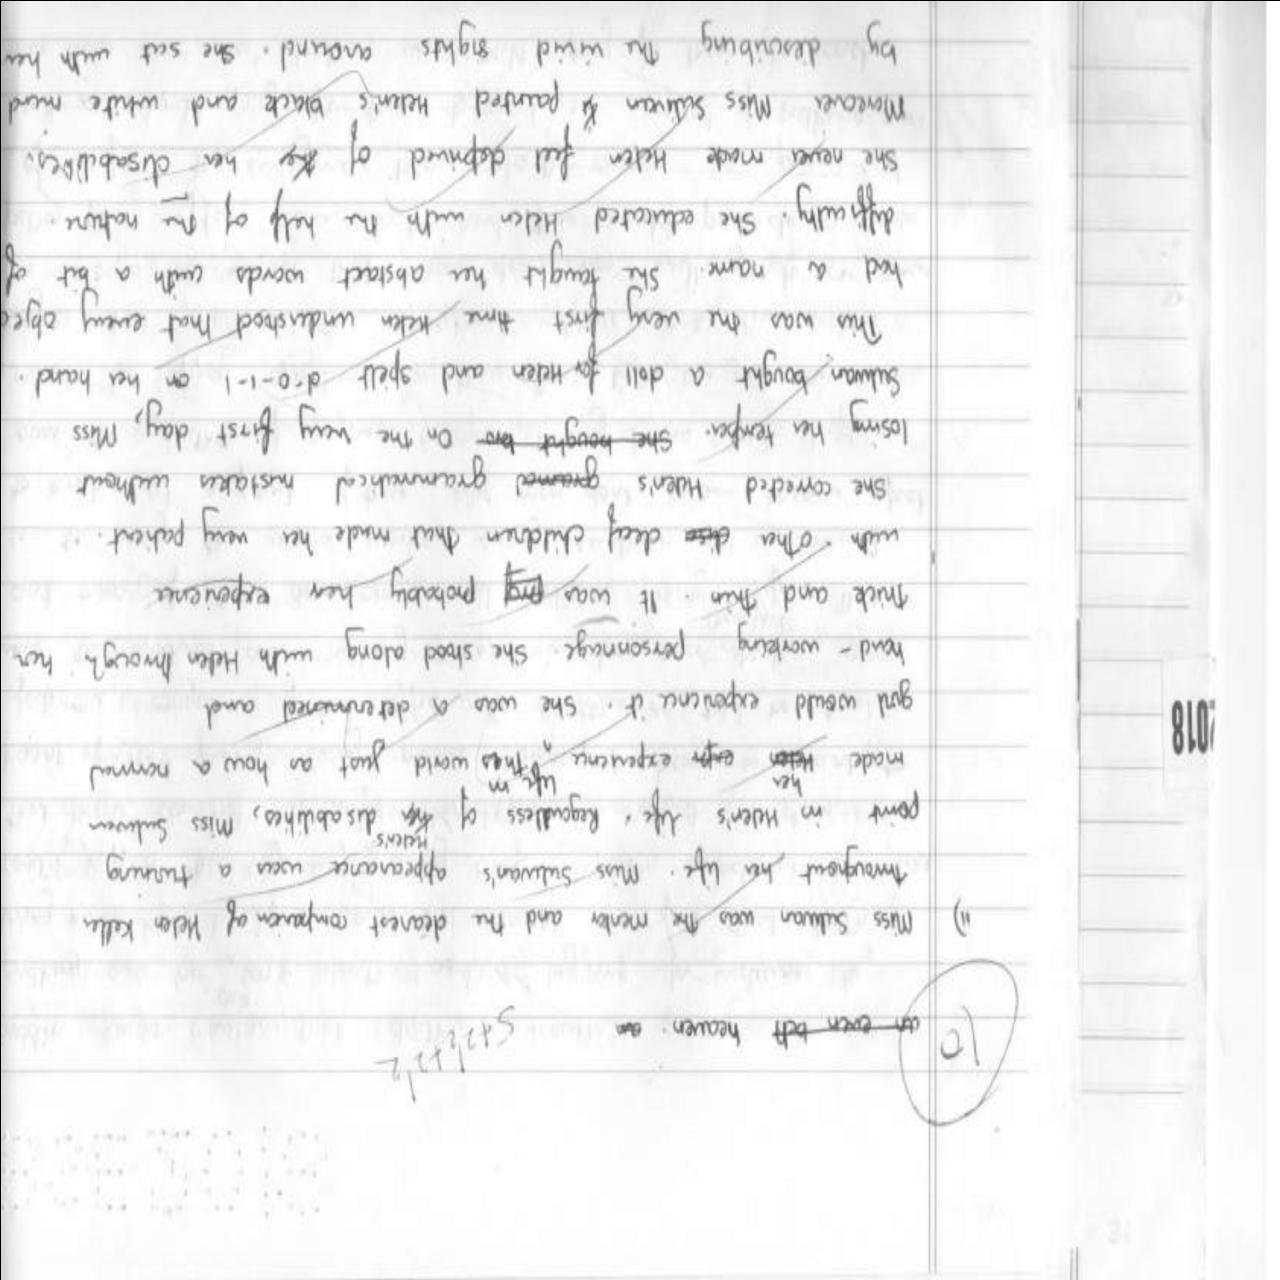 an even bett heaven. an
5+2½+2½
10
ii) Miss Sulivan was the mentor and the dearest companion of Helen Keller
throughout her life. Miss Sulivan's appearance was a turning
point in Helen's life. Regardless of her Helen's disabilities, Miss Sulivan
made Helen her experience life in this world just as how a normal
girl would experience it. She was a determined and
hard-working personnage. She stood along with Helen through her
thick and thin. It was probably her experience
with other deaf children that made her very patient.
She corrected Helen's grammatical mistakes without
losing her temper. She bought two On the very first day, Miss
Sulivan bought a doll for Helen and spilt d-o-l-l on her hand.
This was the very first time Helen understood that every objec
had a name She taught her abstact words with a bit of
difficulty. She educated Helen with the help of the nature.
She never made Helen feel deprived of her disabilities.
Moreover Miss Sulivan painted Helen's black and white mind
by describing the vivid sights around. She sat with her
2018